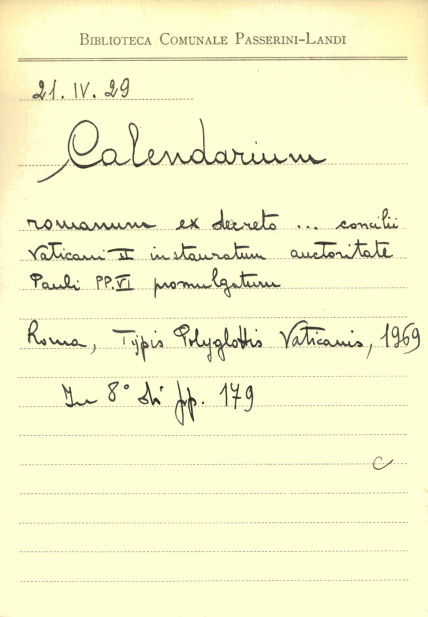 BIBLIOTECA COMUNALE PASSERINI-LANDI
21. IV. 29
Calendarium
romanum ex decreto ... concilii
Vaticani II instauratum auctoritate
Pauli PP. VI promulgatum
Roma, Typis Polyglottis Vaticanis, 1969
In 8° di pp. 179
c